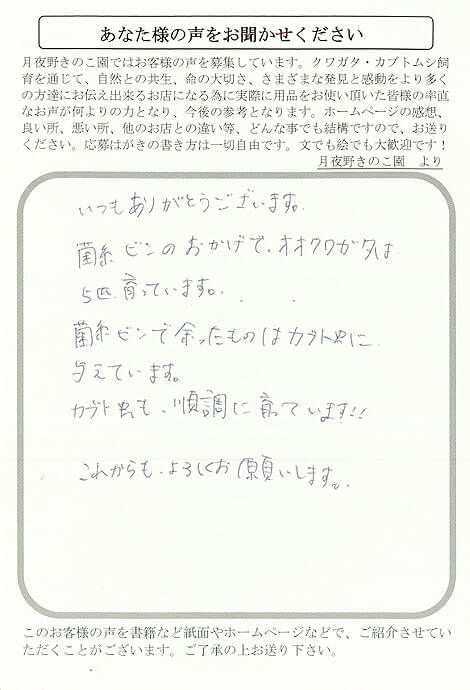 あなた様の声をお聞かせください
月夜野きのこ園ではお客様の声を募集しています。クワガタ・カブトムシ飼
育を通じて、自然との共生、命の大切さ、さまざまな発見と感動をより多く
の方達にお伝え出来るお店になる為に実際に用品をお使い頂いた皆様の率直
なお声が何よりの力となり、今後の参考となります。ホームページの感想、
良い所、悪い所、他のお店との違い等、どんな事でも結構ですので、お送り
ください。応募はがきの書き方は一切自由です。文でも絵でも大歓迎です！
月夜野きのこ園　より
いつもありがとうございます。
菌糸ビンのおかげで、オオクワガタは
5匹育っています。
菌糸ビンで余ったものはカブト虫に
与えています。
カブト虫も、順調に育っています!!
これからも、よろしくお願いします。
このお客様の声を書籍など紙面やホームページなどで、ご紹介させてい
ただくことがございます。ご了承の上お送り下さい。